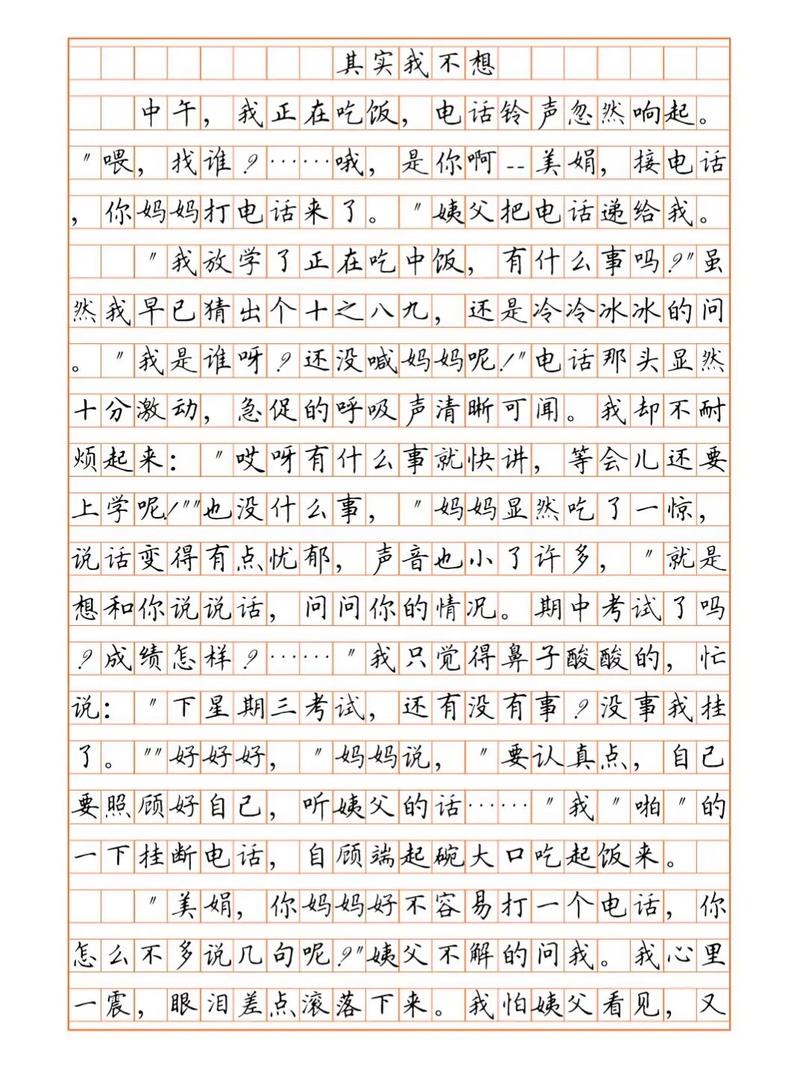 其实我不想
中午，我正在吃饭，电话铃声忽然响起。
"喂，找谁？……哦，是你啊--美娟，接电话
，你妈妈打电话来了。"姨父把电话递给我。
"我放学了正在吃中饭，有什么事吗？"虽
然我早已猜出个十之八九，还是冷冷冰冰的问
。"我是谁呀？还没喊妈妈呢！"电话那头显然
十分激动，急促的呼吸声清晰可闻。我却不耐
烦起来："哎呀有什么事就快讲，等会儿还要
上学呢！""也没什么事，"妈妈显然吃了一惊，
说话变得有点忧郁，声音也小了许多，"就是
想和你说说话，问问你的情况。期中考试了吗
？成绩怎样？……"我只觉得鼻子酸酸的，忙
说："下星期三考试，还有没有事？没事我挂
了。""好好好，"妈妈说，"要认真点，自己
要照顾好自己，听姨父的话……"我"啪"的
一下挂断电话，自顾端起碗大口吃起饭来。
"美娟，你妈妈好不容易打一个电话，你
怎么不多说几句呢？"姨父不解的问我。我心里
一震，眼泪差点滚落下来。我怕姨父看见，又